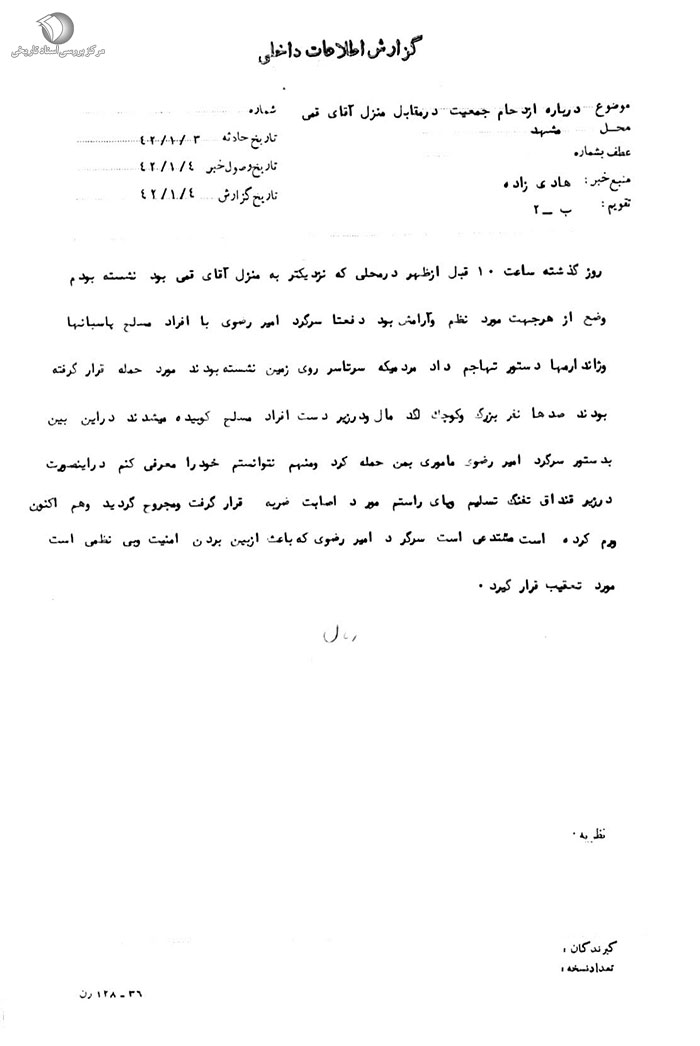 مرکز بررسی اسناد تاریخی
گزارش اطلاعات داخلی
موضوع درباره ازدحام جمعیت درمقابل منزل آقای قمی
محل مشهد
عطف بشماره
منبع خبر: هادی زاده
تقویم: ب ــ ۲
شماره
تاریخ حادثه ۴۲/۱/۳
تاریخ وصول خبر ۴۲/۱/۴
تاریخ گزارش ۴۲/۱/۴
روز گذشته ساعت ۱۰ قبل ازظهر درمحلی که نزدیکتر به منزل آقای قمی بود نشسته بودم
وضع از هرجهت مورد نظم وآرامش بود دفعتا سرگرد امیر رضوی با افراد مسلح پاسبانها
وژاندارمها دستور تهاجم داد مردمیکه سرتاسر روی زمین نشسته بودند مورد حمله قرار گرفته
بودند صدها نفر بزرگ وکوچک لگد مال ودرزیر دست افراد مسلح کوبیده میشدند دراین بین
بدستور سرگرد امیر رضوی ماموری بمن حمله کرد ومنهم نتوانستم خودرا معرفی کنم دراینصورت
درزیر قنداق تفنگ تسلیم وپای راستم مورد اصابت ضربه قرار گرفت ومجروح گردید وهم اکنون
ورم کرده است مستدعی است سرگرد امیر رضوی که باعث ازبین بردن امنیت وبی نظمی است
مورد تعقیب قرار گیرد ۰
نظریه ۰
گیرندگان :
تعدادنسخه :
۳۶ ــ ۱۲۸ رن